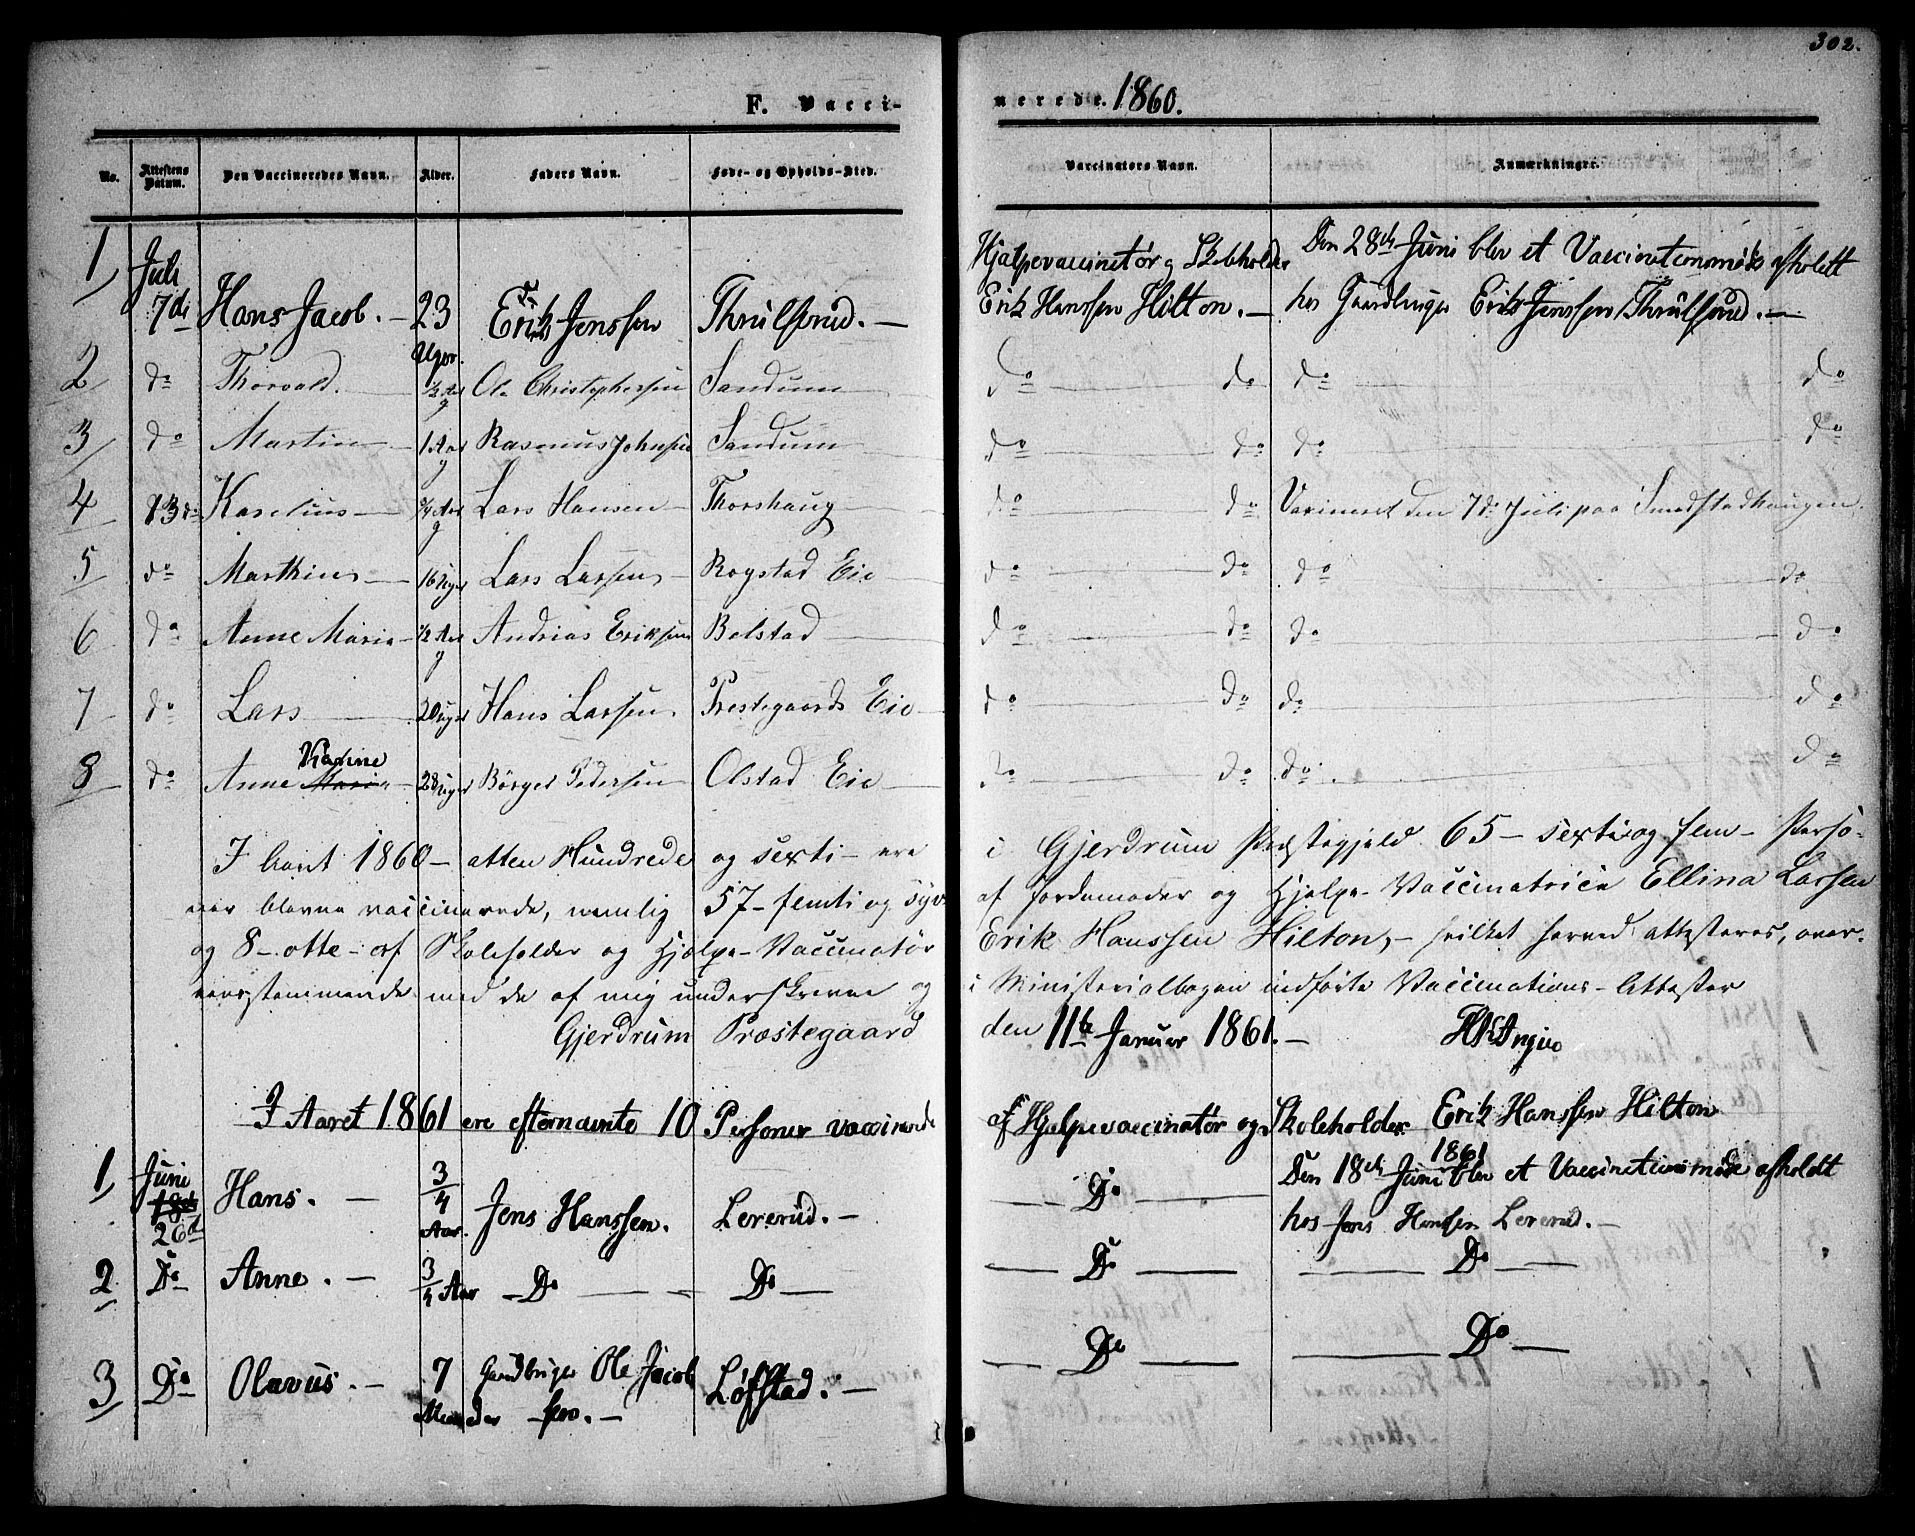 302.
F. Vacci-
nerede. 1860.
No. Attestens Datum. Den Vaccineredes Navn. Alder. Faders Navn. Føde- og Opholds-Sted. Vaccinators Navn. Anmærkninger.
1, Juli Hjælpevaccinatør og Skoleholder Den 28de Juni blev et Vaccinationsmøde afholdt
7de Hans Jacob. — 23 Uger. Erik Jenssen Thrulsrud. — Erik Hanssen Hilton. — hos Gaardbruger Erik Jenssen Thrulsrud. —
2 do Thorvald ½ Aar Ole Christophersen Sandum do do do do
3 do Martin 1 Aar Rasmus Johnsen Sandum do do do do
4 13de Karelius ¾ Aar Lars Hansen Thorshaug do do Vaxineret den 7de Juli paa Smedstadhaugen
5 do Marthin 16 Uger Lars Larsen Rogstad Eie do do do do
6 do Anne Maria ½ Aar Andrias Eriksen Bolstad do do do do
7 do Lars 20 Uger Hans Larsen Prestegaards Eie do do do do
Karine
8 do Anne Maria 28 Uger Børger Pedersen Olstad Eie do do do do
I Aaret 1860 — atten Hundrede og sexti — ere i Gjerdrum Præstegjeld 65 — sexti og fem — Perso-
ner blevne vaccinerede, nemlig 57 — femti og syv af Jordemoder og Hjælpe-Vaccinatrice Ellina Larsen
og 8 — otte — af Skoleholder og Hjælpe-Vaccinatør Erik Hanssen Hilton, — hvilket herved attesteres, over-
eensstemmende med de af mig underskrevne og i Ministerialbogen indførte Vaccinations-Attester
Gjerdrum Præstegaard den 11te Januar 1861. —
I Aaret 1861 ere efternævnte 10 Personer vaccinerede af Hjælpevaccinatør og Skoleholder Erik Hanssen Hilton
1, Juni 18de 26d Hans. — ¾ Aar. Jens Hanssen. Lererud. — Do Den 18de Juni 1861 blev et Vaccinationsmøde afholdt
hos Jens Hansen Lererud. —
2 Do Anne. — ¾ Aar Do Do Do Do
3 Do Olavus. — 7 Maaneder Gaardbruger Ole Jacobsen. — Løfstad. — Do Do